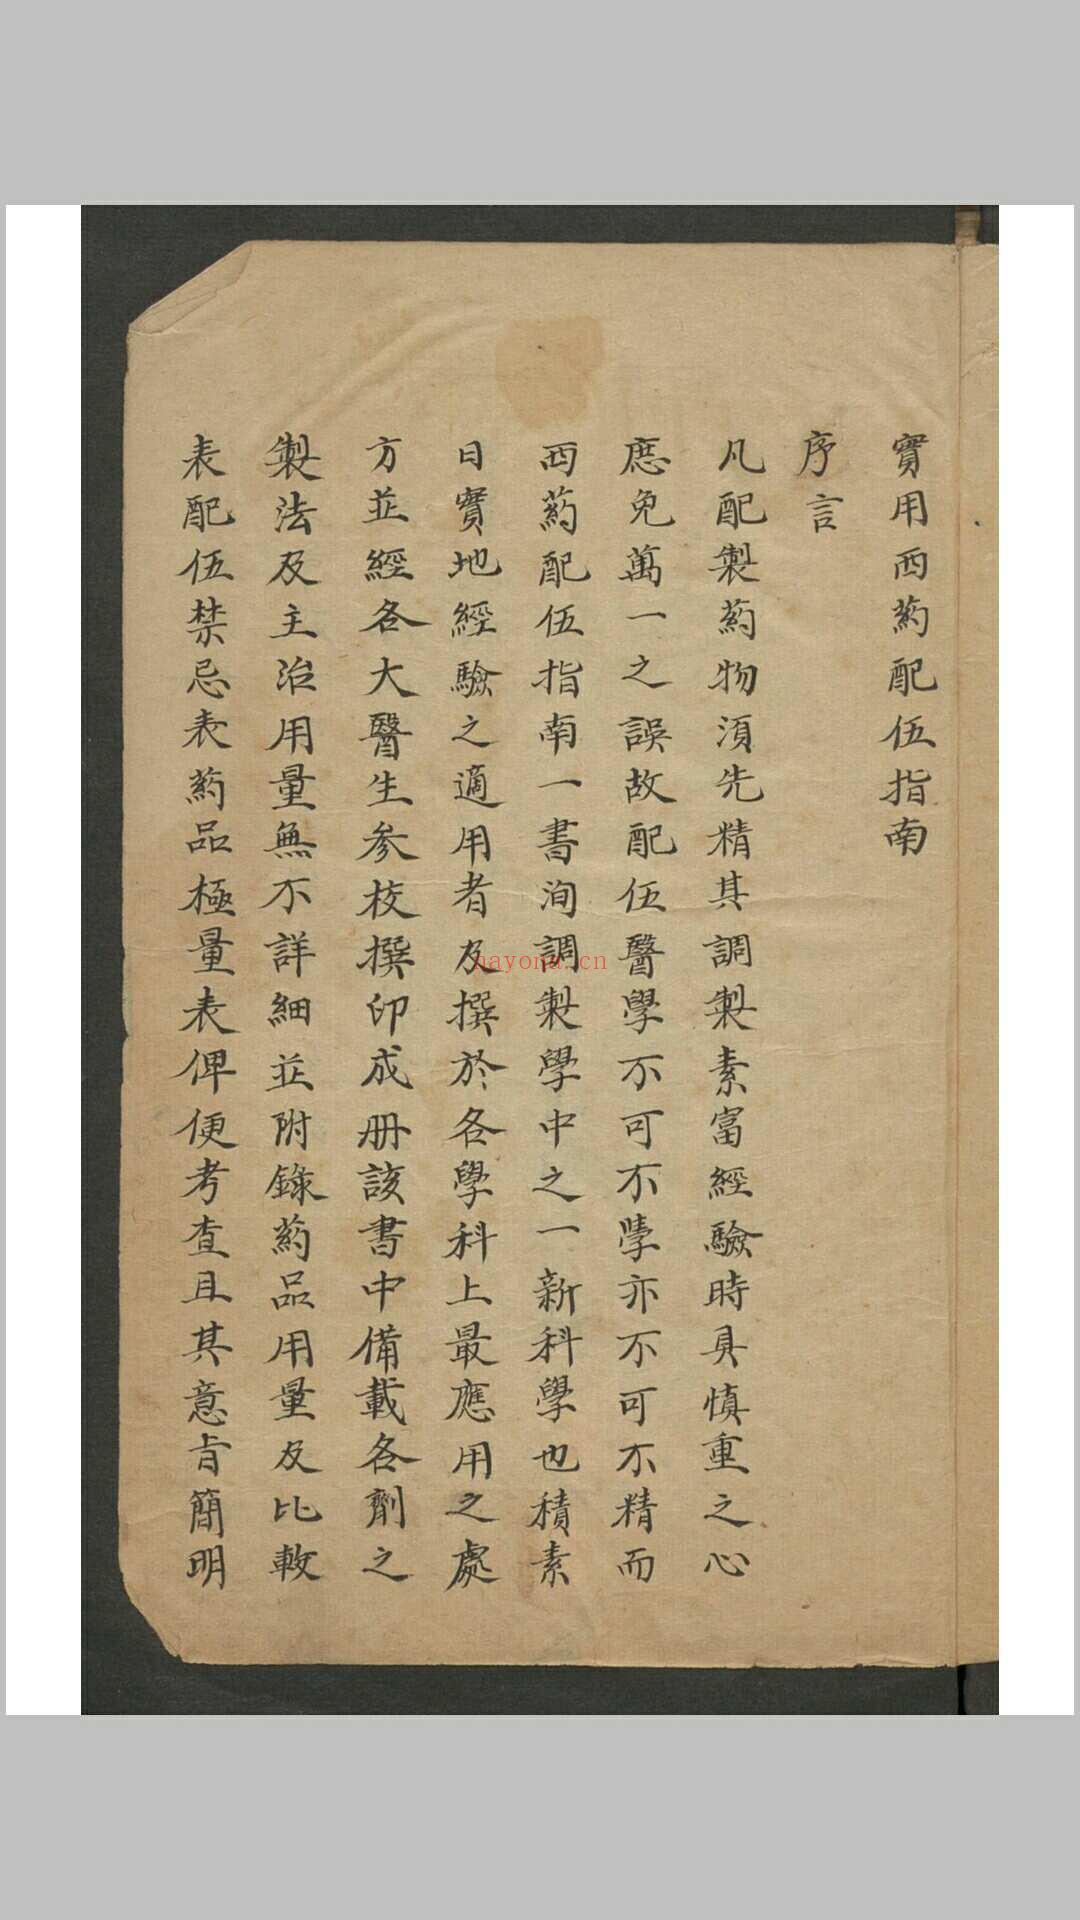 實用西葯配伍指南
序言
凡配製葯物須先精其調製素富經驗時具慎重之心
庶免萬一之誤故配伍醫學不可不學亦不可不精而
西葯配伍指南一書洵調製學中之一新科學也積素
日實地經驗之適用者及撰於各學科上最應用之處
方並經各大醫生參校撰印成册該書中備載各劑之
製法及主治用量無不詳細並附錄葯品用量及比較
表配伍禁忌表葯品極量表俾便考查且其意旨簡明
nayona.cn